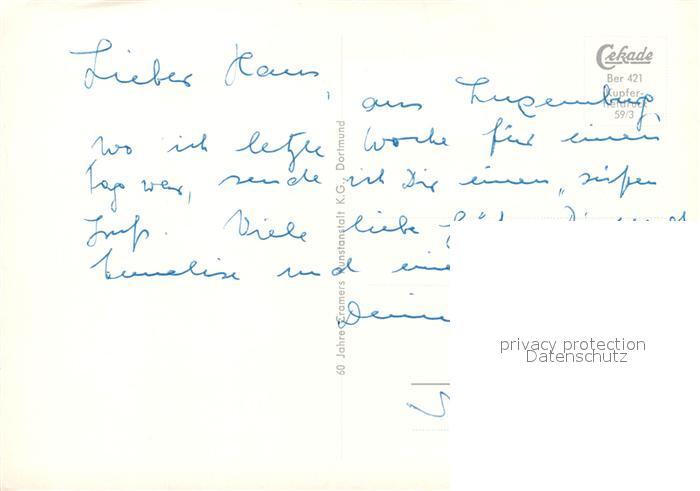 Lieber Hans,
aus Luxemburg
wo ich letzte Woche für einen
Tag war, sende ich Dir einen „süßen
Gruß. Viele liebe
Annelise und eine
Deine
Cekade
Ber 421
Kupfer-
tiefdruck
59/3
60 Jahre Cramers Kunstanstalt K.G., Dortmund
privacy protection
Datenschutz